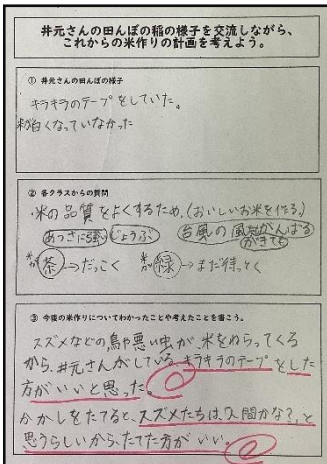 井元さんの田んぼの稲の様子を交流しながら、
これからの米作りの計画を考えよう。
① 井元さんの田んぼの様子
キラキラのテープをしていた。
粉白くなっていなかった
② 各クラスからの質問
・米の品質をよくするため。(おいしいお米を作る。)
あつさに強 じょうぶ 台風の風
がきても
米が 茶→だっこく 米が 緑→まだ待っとく
③ 今後の米作りについてわかったことや考えたことを書こう。
スズメなどの鳥や悪い虫が、米をねらってくる
から、井元さんがしているキラキラのテープをした
方がいいと思った。
かかしをたてると、スズメたちは、人間かな?と
思うらしいから、たてた方がいい。